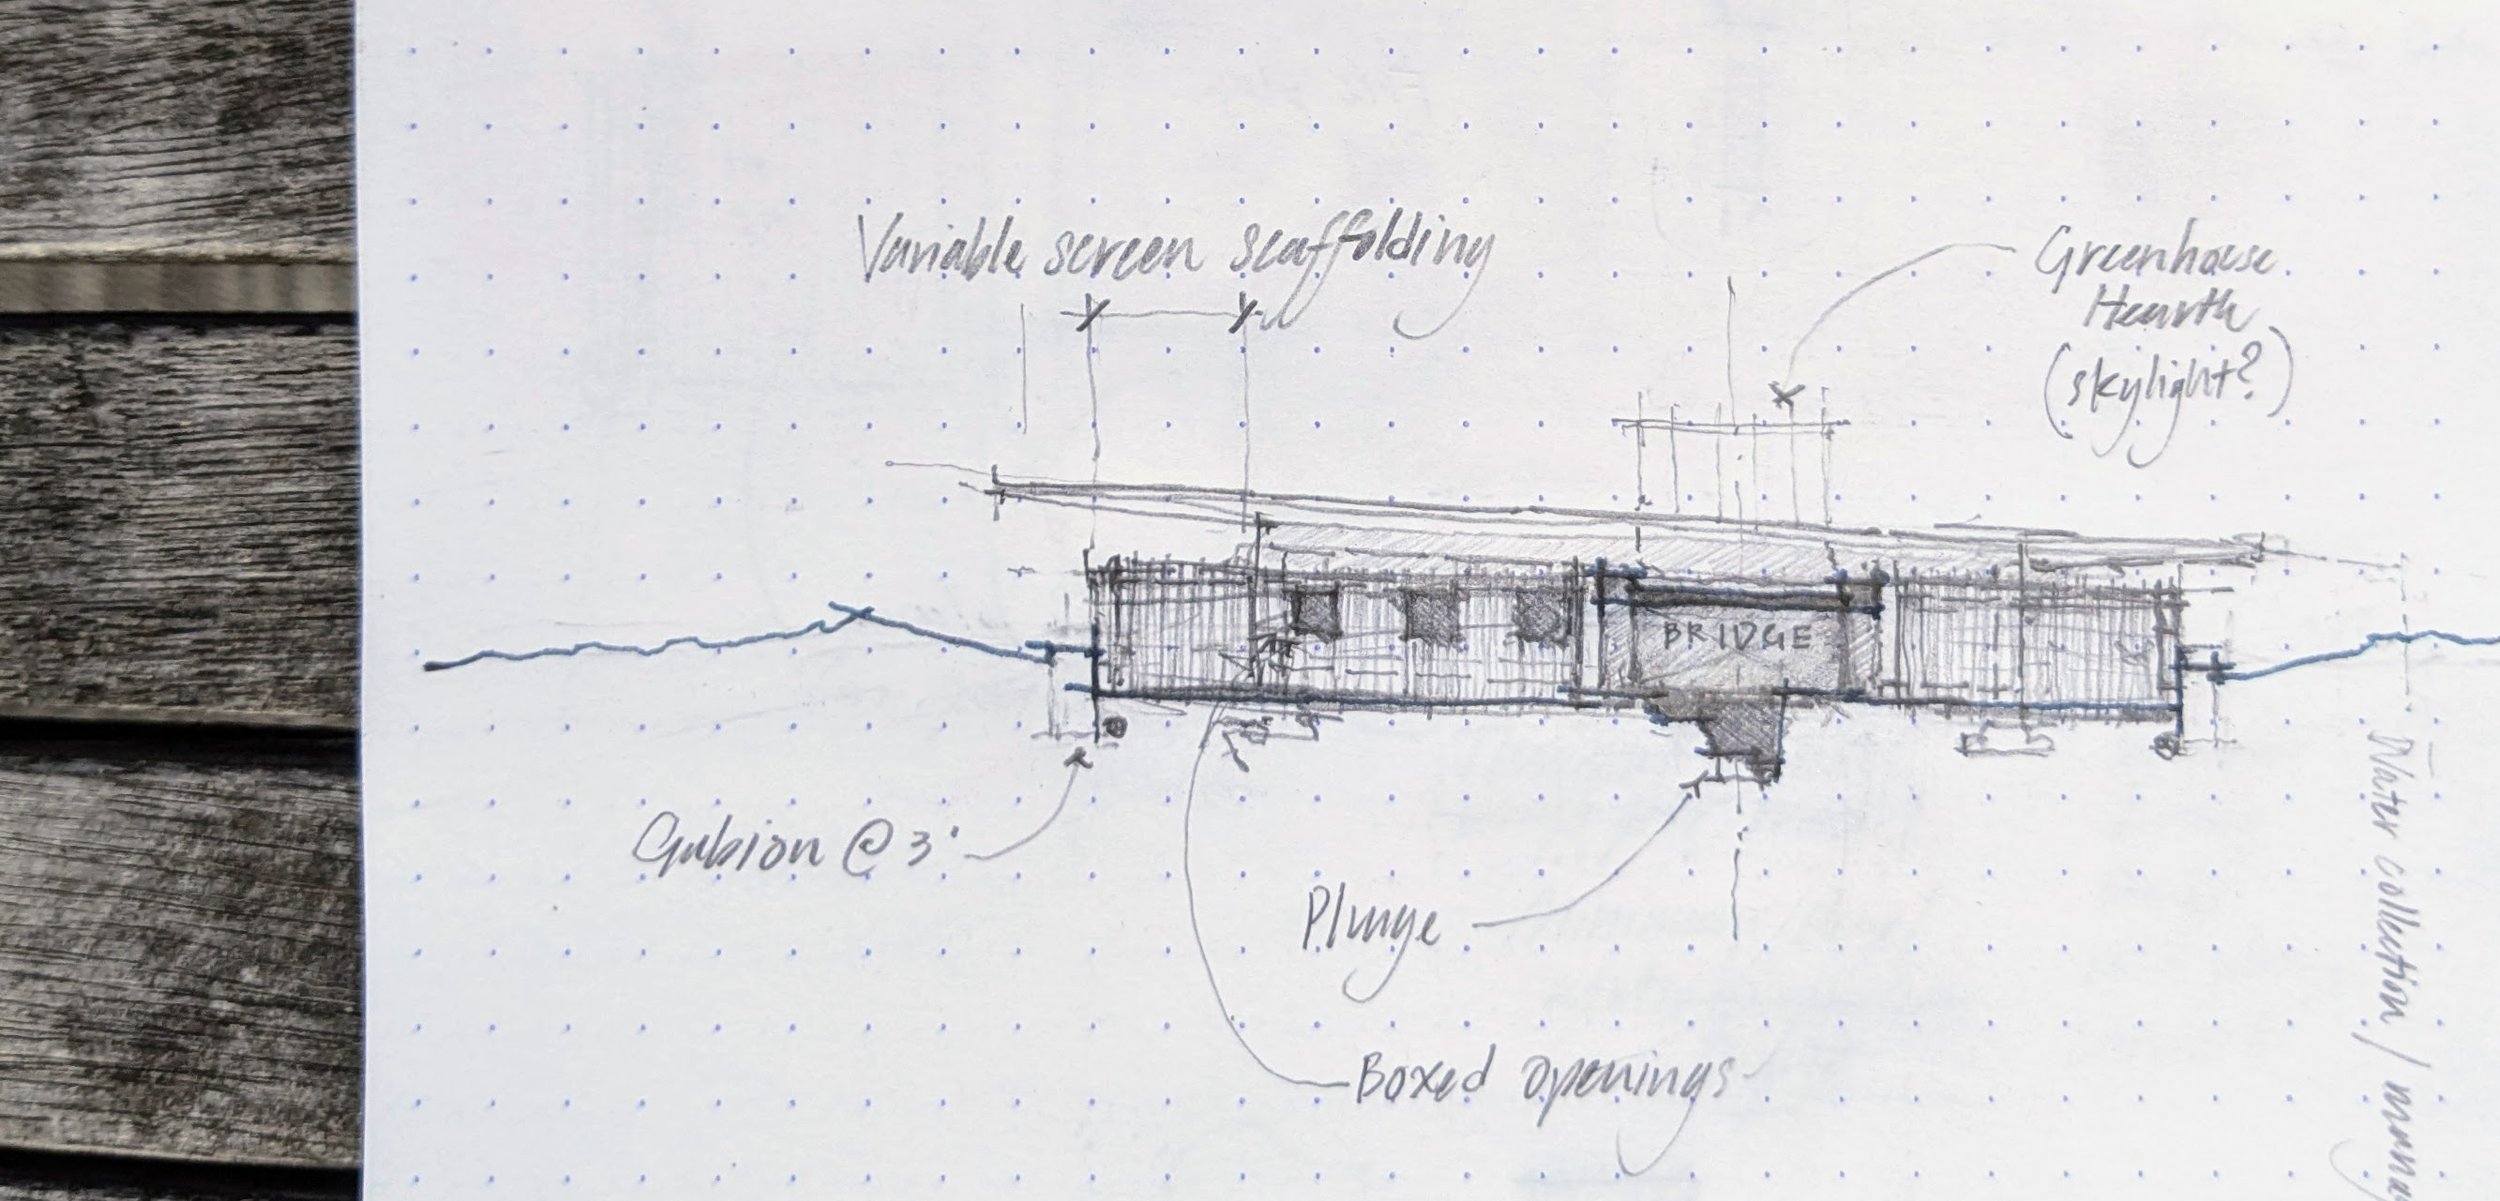 Variable screen scaffolding
Greenhouse
Hearth
(skylight?)
BRIDGE
Gabion @ 3'
Plunge
Boxed openings
Water collection /